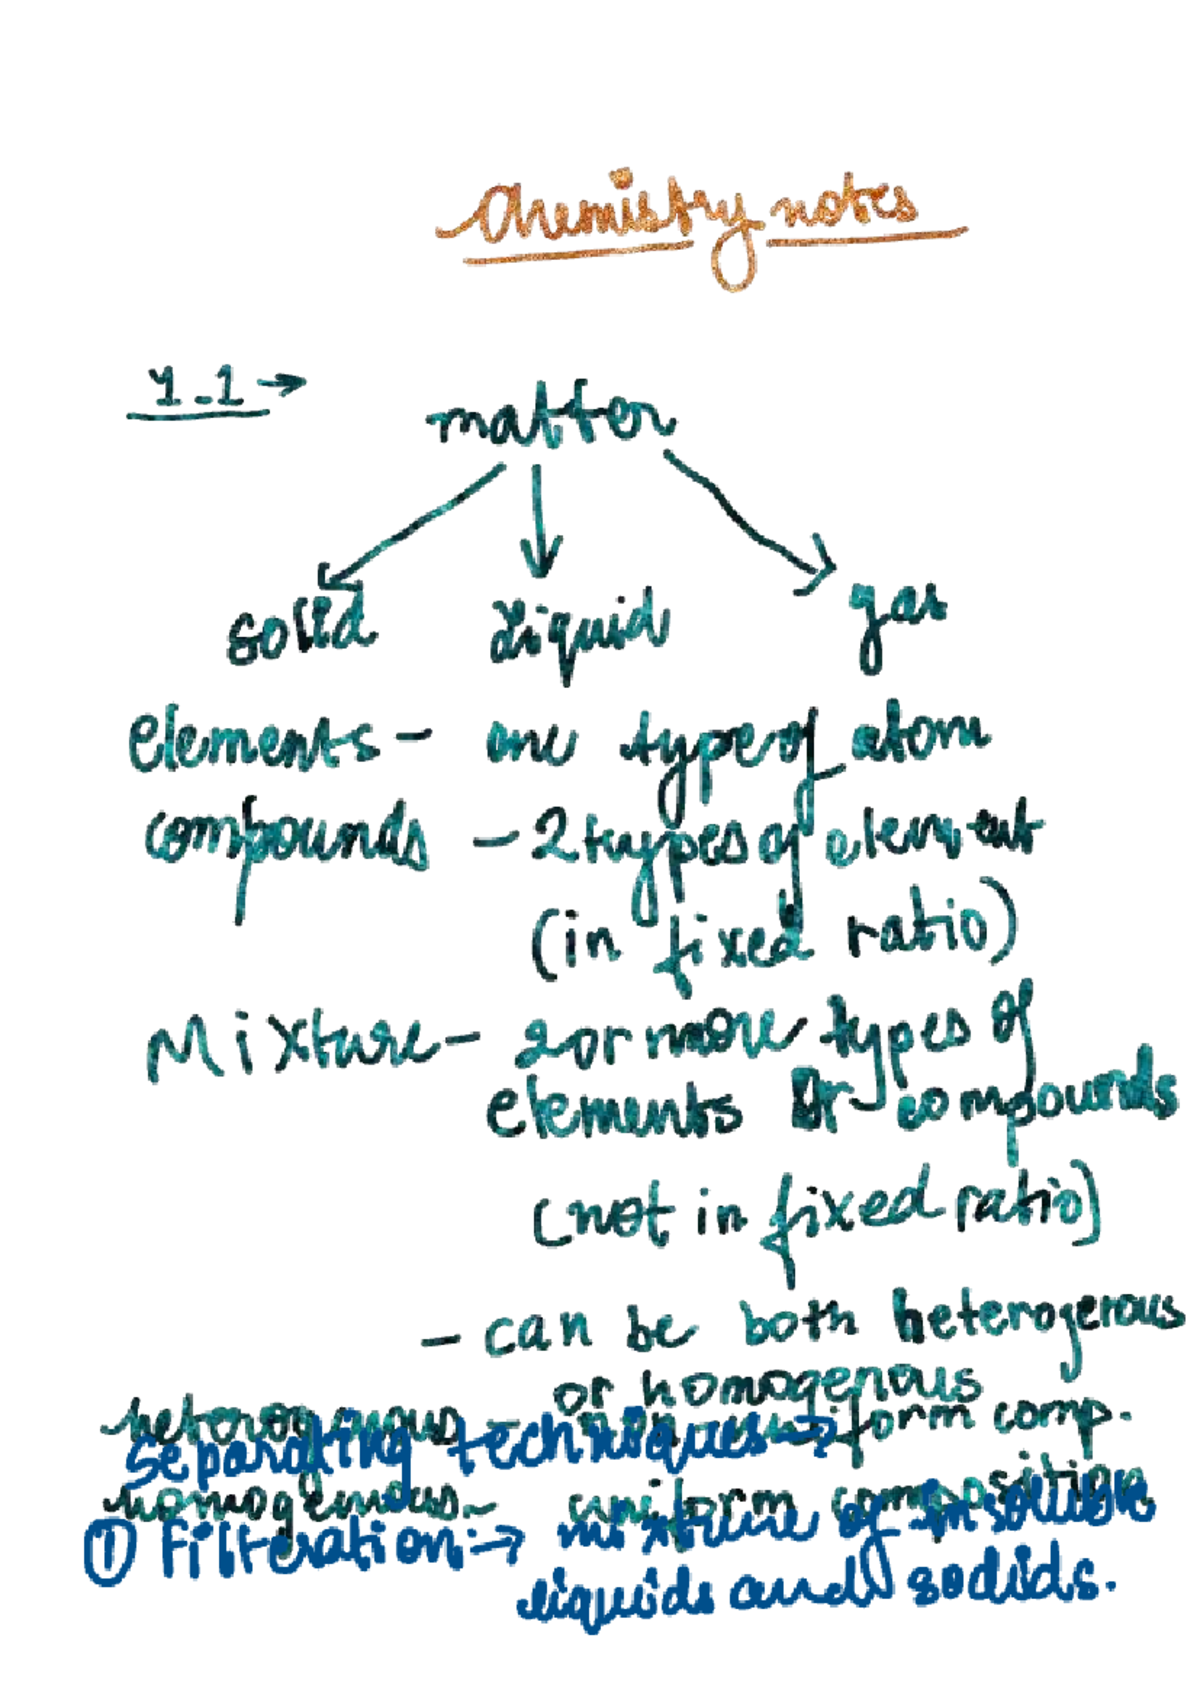 Chemistry notes
1.1 →
matter
solid liquid gas
elements - one type of atom
compounds - 2 types of element
(in fixed ratio)
Mixture - 2 or more types of
elements or compounds
(not in fixed ratio)
- can be both heterogenous
or homogenous
heterogenous - non-uniform comp.
Separating techniques →
homogenous - uniform composition
① Filteration :→ mixture of insoluble
liquids and solids.